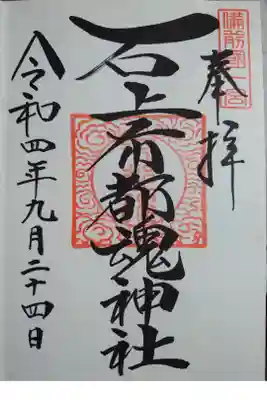 備前國一宮
奉拝
石上布都魂神社
令和四年九月二十四日